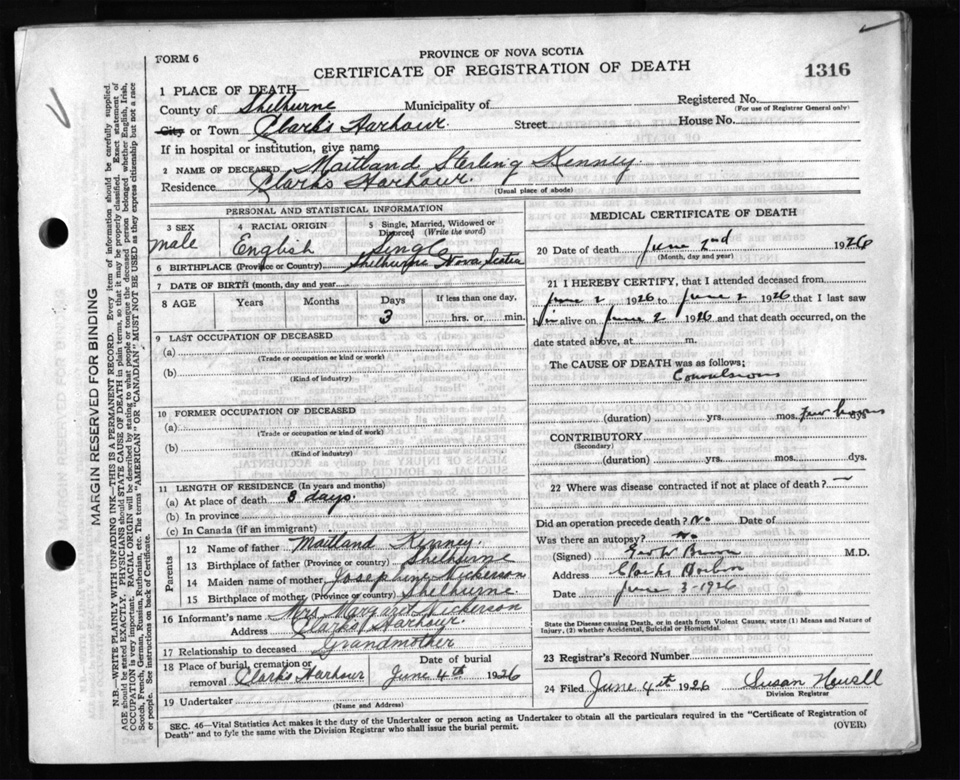 PROVINCE OF NOVA SCOTIA
FORM 6
CERTIFICATE OF REGISTRATION OF DEATH
1316
1 PLACE OF DEATH—
County of Shelburne Municipality of Registered No.
(For use of Registrar General only)
City or Town Clarks Harbour. Street House No.
If in hospital or institution, give name
2 NAME OF DECEASED Maitland Sterling Kenney.
Residence Clarks Harbour.
(Usual place of abode)
PERSONAL AND STATISTICAL INFORMATION
3 SEX 4 RACIAL ORIGIN 5 Single, Married, Widowed or Divorced (Write the word)
male English Single
6 BIRTHPLACE (Province or Country) Shelburne Nova Scotia
7 DATE OF BIRTH (month, day and year)
8 AGE Years Months Days If less than one day,
3 hrs. or min.
9 LAST OCCUPATION OF DECEASED
(a)
(Trade or occupation or kind of work)
(b)
(Kind of industry)
10 FORMER OCCUPATION OF DECEASED
(a)
(Trade or occupation or kind of work)
(b)
(Kind of industry)
11 LENGTH OF RESIDENCE (In years and months)
(a) At place of death 3 days.
(b) In province
(c) In Canada (if an immigrant)
Parents
12 Name of father Maitland Kenney.
13 Birthplace of father (Province or country) Shelburne
14 Maiden name of mother Josephine Nickerson
15 Birthplace of mother (Province or country) Shelburne.
16 Informant's name Mrs Margaret Nickerson
Address Clarks Harbour.
17 Relationship to deceased Grandmother
18 Place of burial, cremation or removal Clarks Harbour Date of burial June 4th 1926
19 Undertaker
(Name and Address)
MEDICAL CERTIFICATE OF DEATH
20 Date of death June 2nd 1926
(Month, day and year)
21 I HEREBY CERTIFY, that I attended deceased from
June 2 1926 to June 2 1926 that I last saw
him alive on June 2 1926 and that death occurred, on the
date stated above, at m.
The CAUSE OF DEATH was as follows;
Convulsions
(duration) yrs. mos. few hours dys
CONTRIBUTORY
(Secondary)
(duration) yrs. mos. dys.
22 Where was disease contracted if not at place of death? —
Did an operation precede death? No Date of
Was there an autopsy? No
(Signed) Geo W Brown M.D.
Address Clarks Harbor
Date June 3-1926
State the Disease causing Death, or in death from Violent Causes, state (1) Means and Nature of
Injury, (2) whether Accidental, Suicidal or Homicidal.
23 Registrar's Record Number
24 Filed June 4th 1926 Susan Newell
Division Registrar
SEC. 46—Vital Statistics Act makes it the duty of the Undertaker or person acting as Undertaker to obtain all the particulars required in the "Certificate of Registration of
Death" and to fyle the same with the Division Registrar who shall issue the burial permit. (OVER)
MARGIN RESERVED FOR BINDING
N.B.—WRITE PLAINLY WITH UNFADING INK—THIS IS A PERMANENT RECORD. Every item of information should be carefully supplied.
AGE should be stated EXACTLY. PHYSICIANS should STATE CAUSE OF DEATH in plain terms, so that it may be properly classified. Exact statement of
OCCUPATION is very important. RACIAL ORIGIN will be described by stating to what people or tongue the deceased person belonged whether English, Irish,
Scotch, French, German, Russian, Ruthenian, etc. The terms "AMERICAN" OR "CANADIAN" MUST NOT BE USED as they express citizenship but not a race
or people. See instructions on back of Certificate.